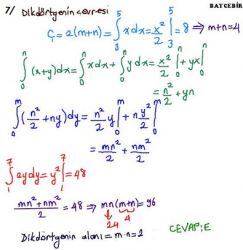 BAYCEBİR
7/ Dikdörtgenin çevresi
Ç = 2(m+n) = ∫₃⁵ x dx = x²/2 |₃⁵ = 8 ⇒ m+n = 4
∫₀ⁿ (x+y)dx = ∫₀ⁿ x dx + ∫₀ⁿ y dx = x²/2 |₀ⁿ + yx |₀ⁿ
= n²/2 + yn
∫₀ᵐ (n²/2 + ny)dy = n²/2 y |₀ᵐ + n y²/2 |₀ᵐ
= mn²/2 + nm²/2
∫₁⁷ 2y dy = y² |₁⁷ = 48
mn²+nm²/2 = 48 ⇒ mn(m+n) = 96
24 4
Dikdörtgenin alanı = m·n = 2 CEVAP: E